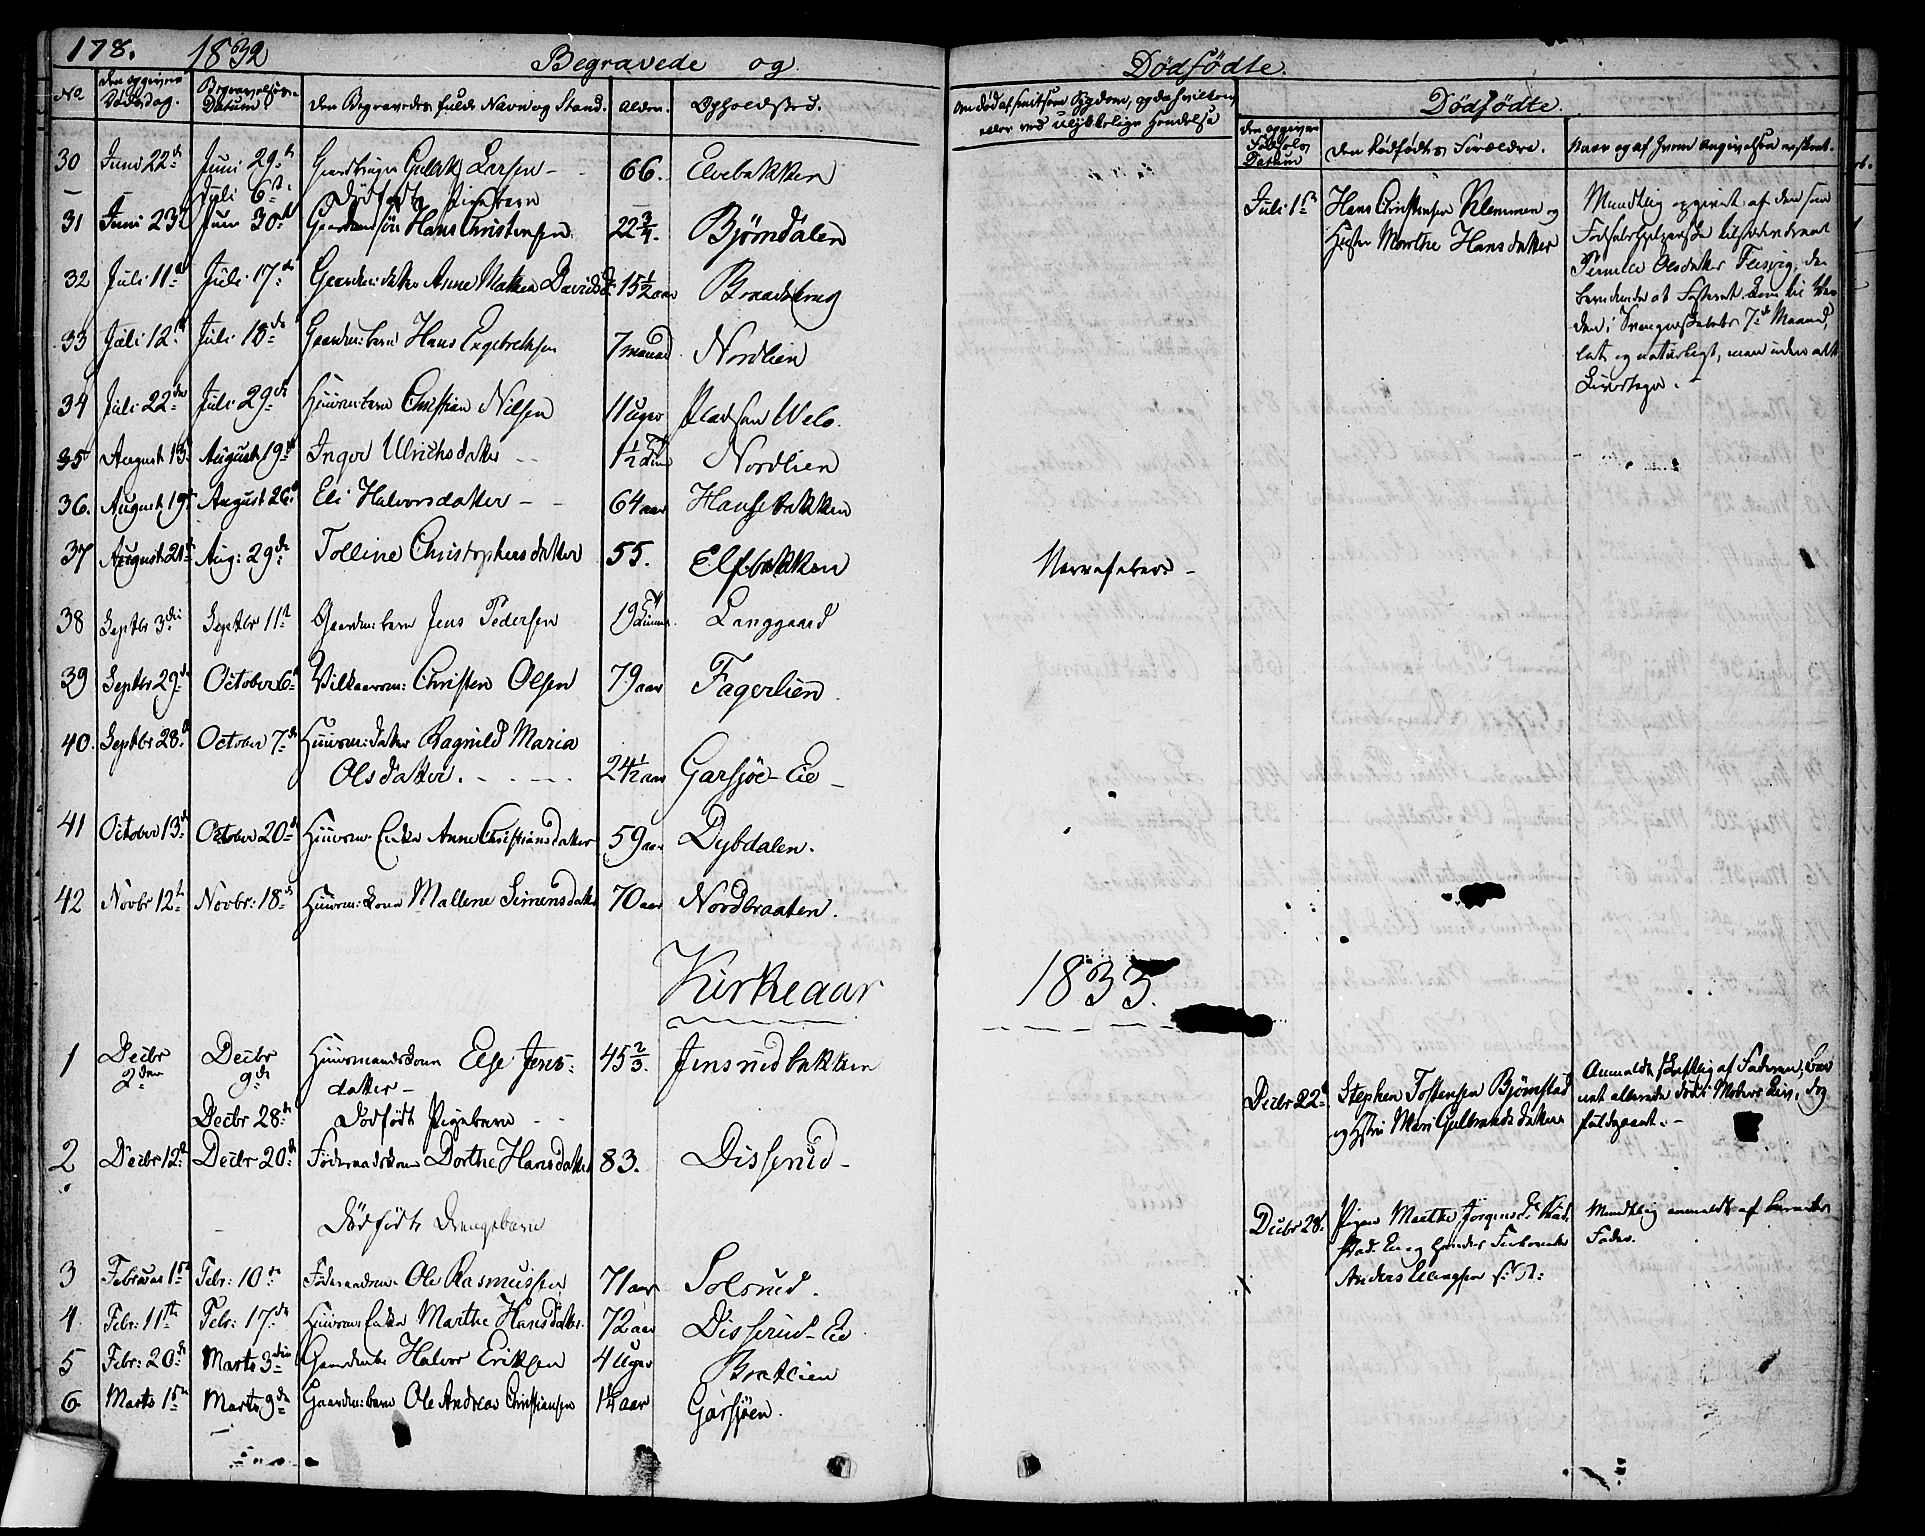 178. 1832 Begravede og Dødfødte.
No den opgivne Dødsdag. Begravelses- Datum den Begravedes fulde Navn og Stand. Alder. Opholdssted.
Om død af smitsom Sygdom, og da hvilken, eller ved ulykkelige Hendelse
Dødfødte.
den opgivne Fødsels Datum den Dødfødtes Forældre. Naar og af hvem Angivelsen er skeet.
30 Juni 22de Juni 29de Gaardbruger Larsen - 66. Elvebakken
- Juli 6te Dødfødt Pigebarn
Juli 1ste Hans Christensen Klemmen og
Hustru Marthe Hansdatter
Mundtlig opgivet af den som
Fødselshjelperske tilstedeværende
Pernille Olsdatter
at Fosteret kom til Ver-
den i Svangerskabets 7de Maaned,
let og naturligt, men uden alt
Livstegn. -
31 Juni 23de Juni 30te Gaardmd søn Hans Christensen 22 3/4. Bjørndalen
32 Juli 11te Juli 17de Gaardm: datter Anne Mathea Davidsd: 15 1/2 aar Braadskrug
33 Juli 12te Juli 18de Gaardm: barn Hans Engebretsen 7 maaned Nordlien
34 Juli 22de Juli 29de Huusm: barn Christian Nilsen 11 uger Pladsen Welo.
35 August 13de August 19de Inger Ulrichsdatter - 1 1/2 Time Nordlien
36. August 19de August 26de Eli Halvorsdatter - - 64 aar Haugebakken
37 August 21de Aug: 29de Tolline Christophersdatter 55. Elfbakken Nervefeber -
38 Septbr 3die Septbr 11te Gaardm: barn Jens Pedersen 19 Timer Langgaard
39 Septbr 29de October 6te Vilkaarsm: Christen Olsen 79 aar Fagerlien.
40. Septbr 28de October 7de Huusm: datter Ragnild Maria
Olsdatter. - - - 24 1/2 aar Garsjøe-Eie -
41 October 13de October 20de Huusm: Enke Anne Christiansdatter 59 aar Dybdalen.
42 Novbr 12te Novbr: 18de Huusm: kone Mallene Simensdatter 70 aar Nordbraaten.
Kirkeaar 1833.
1 Decbr 2den Decbr 9de Huusmandskone Else Jens-
datter - 45 2/3. Jensrudbakken
Decbr 28de Dødfødt Pigebarn - -
Decbr 22de Stephen Tostensen Bjørnstad
og Hstru Mari Gulbrandsdatter
Anmeldt skriftlig af Faderen; Bar
net allerede død i Moders Liv, dog
fuldbaaret. -
2 Decbr 12te Decbr 20de Føderaadskone Dorthe Hansdatter 83. Disserud -
Dødfødt Drengebarn
Decbr 28de Pigen Marthe Jørgensd:
Anders Ellingsen
Mundtlig anmeldt af Barnets
Fader.
3 Februar 1ste Febr: 10de Føderaadsm: Ole Rasmussen 71 aar Solsrud.
4 Febr: 11te Febr: 17de Huusm: Enke Marthe Hansdatter 72 aar Disserud-Eie
5 Febr: 20de Marts 3die Halvor Eriksen 4 Uger Bratlien
6 Marts 1ste Marts 9de Gaardm: barn Ole Andreas Christiansen 1 1/4 aar Garsjøen.